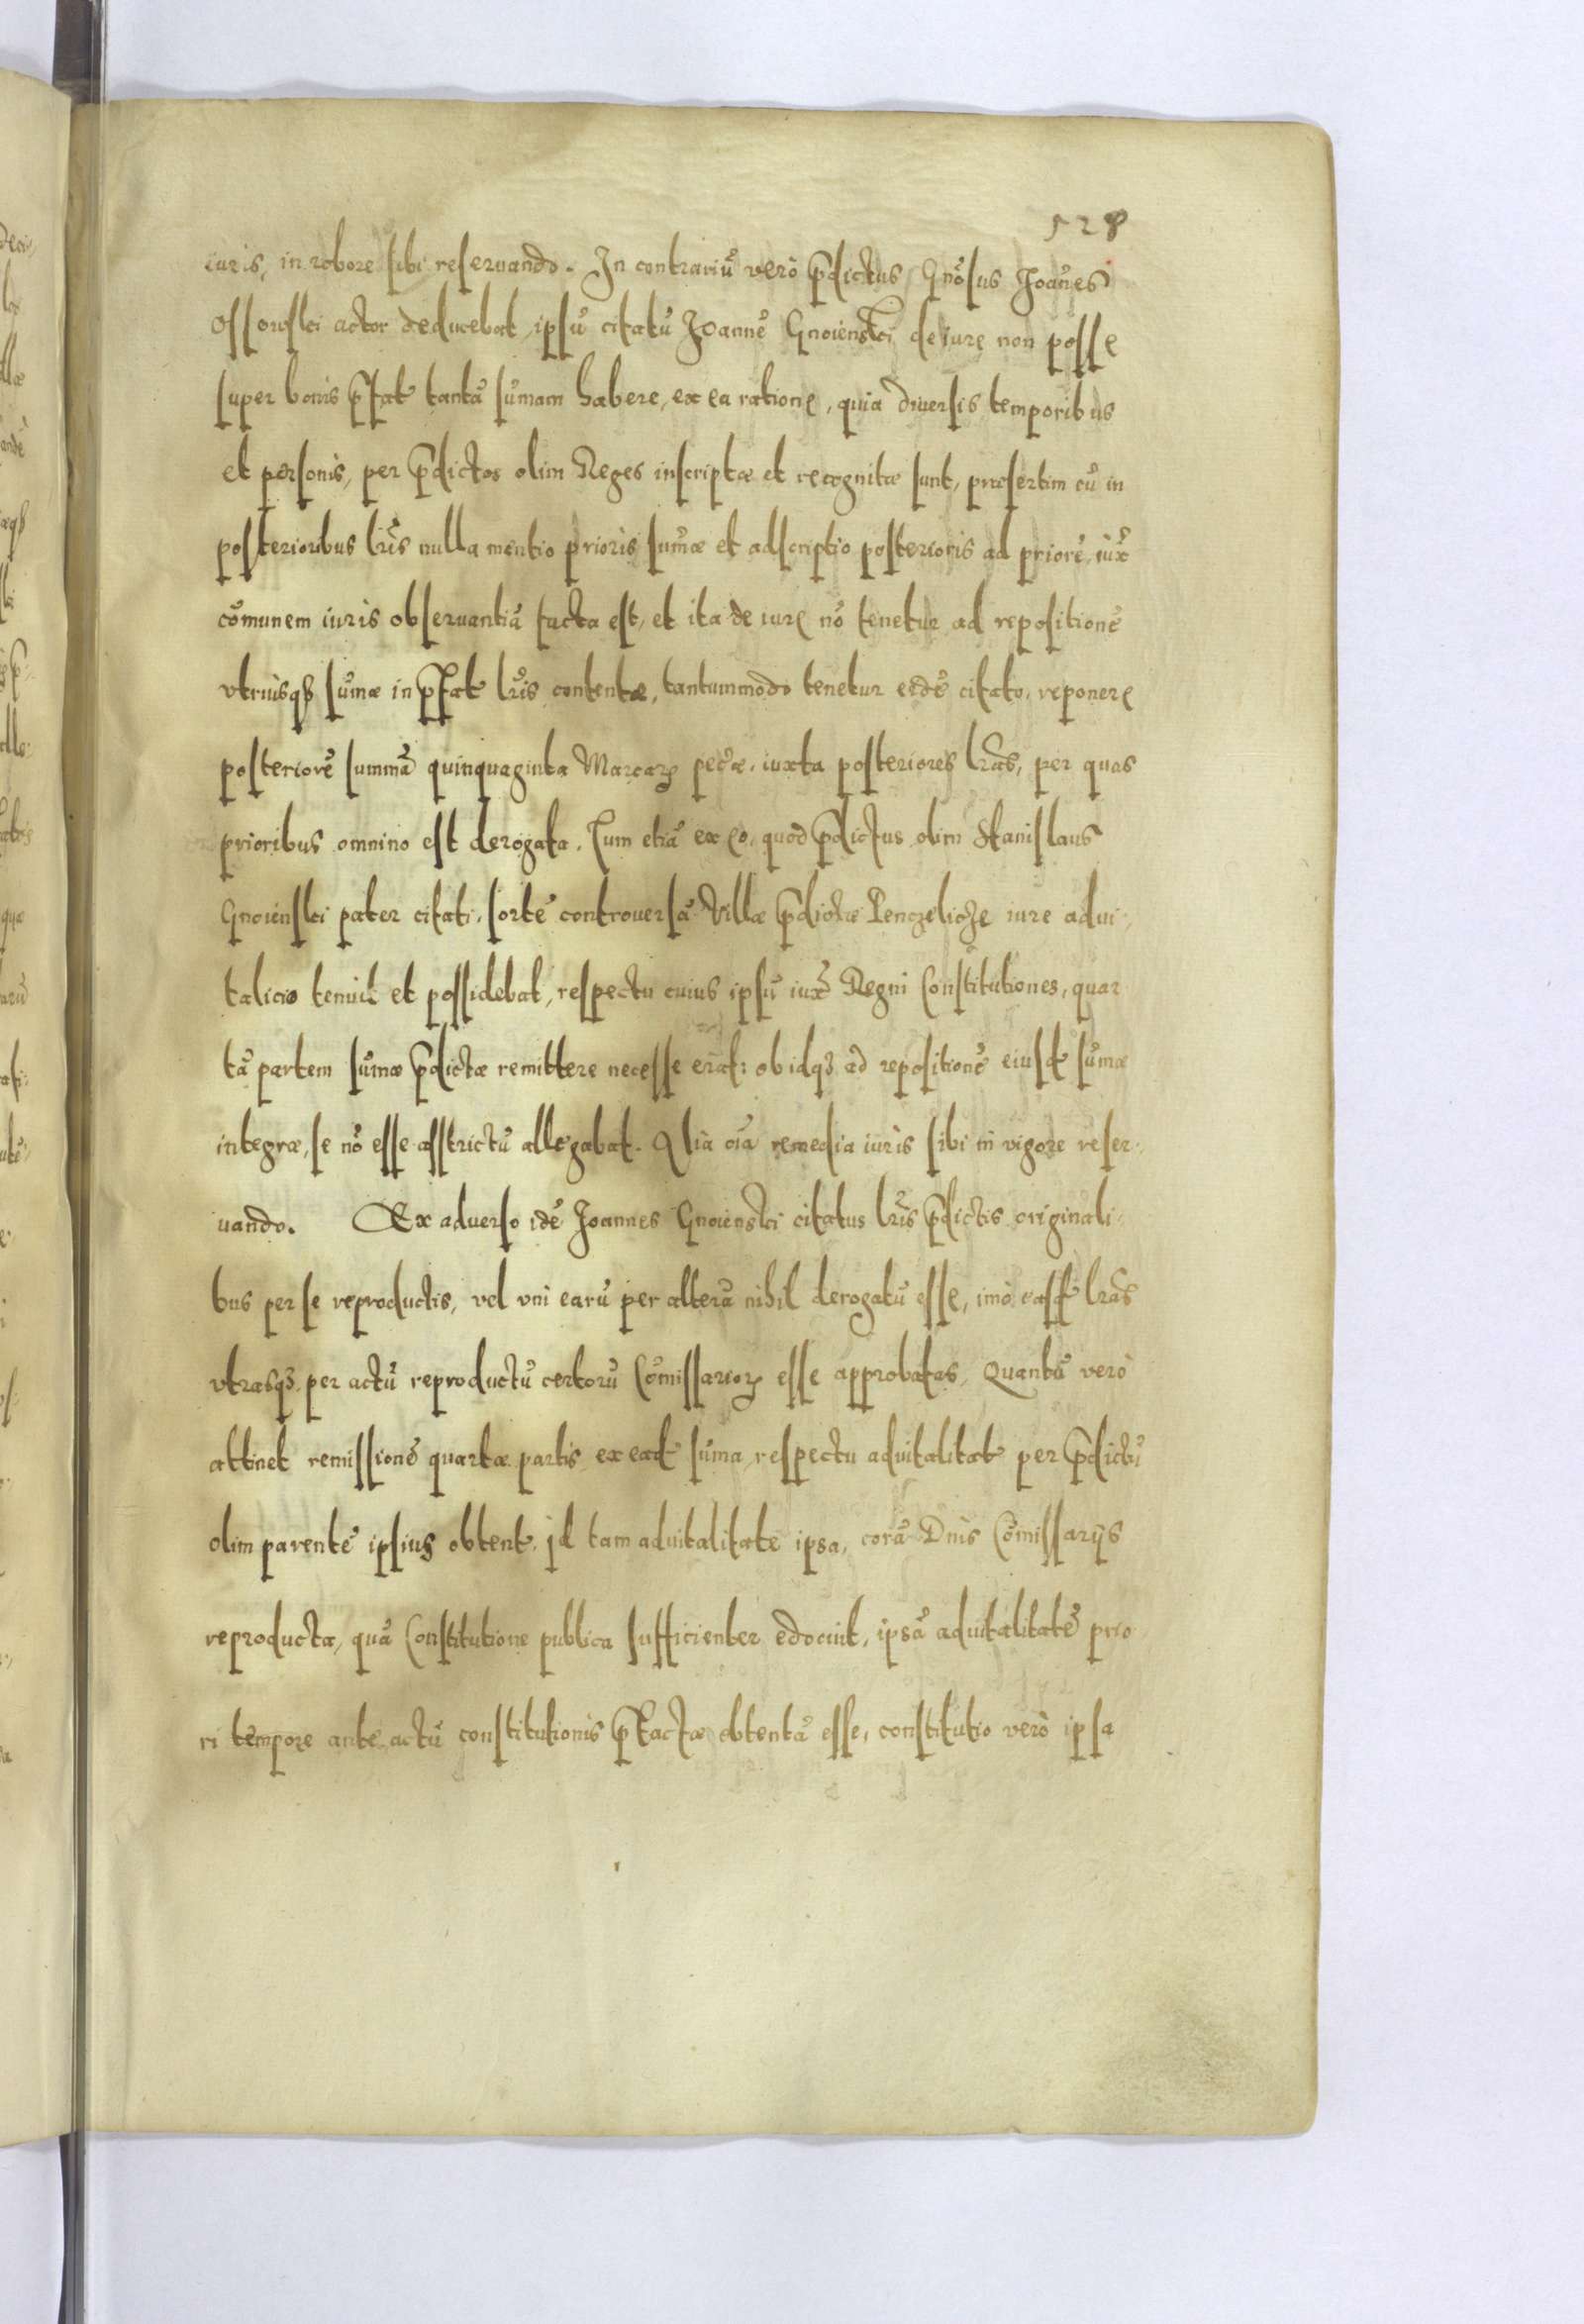 528
iuris, in robore sibi reseruando. In contrariũ verò p̃dictus Gnõsus Joañes
Ossowski actor deducebat, ipsũ citatũ Joannẽ Gnoienski de iure non posse
super bonis p̃fat tantã sum̃am habere, ex ea ratione, quia diuersis temporibus
et personis, per p̃dictos olim Reges inscriptæ et recognitæ sunt, præsertim cũ in
posterioribus lr̃is nulla mentio prioris sum̃æ et adscriptio posterioris ad priorẽ, iux̃
cõmunem iuris obseruantiã facta est, et ita de iure nõ tenetur ad repositionẽ
vtriusqȝ sum̃æ in p̃fat lr̃is contentæ, tantummodo tenetur eidẽ citato, reponere
posteriorẽ summã quinquaginta Marcarꝝ pec̃æ, iuxta posteriores lr̃as, per quas
prioribus omnino est derogata. Tum etiã ex eo, quod p̃dictus olim Stanislaus
Gnoienski pater citati, sortẽ controuersã Villæ p̃dictæ Penczelicze iure adui-
talicio tenuit et possidebat, respectu cuius ipsũ iux̃ Regni Constitutiones, quar
tã partem sum̃æ p̃dictæ remittere necesse erat: ob idqȝ ad repositionẽ eiusd sum̃æ
integræ, se nõ esse asstrictũ allegabat. Alia oĩa remedia iuris sibi in vigore reser-
uando. Ex aduerso idẽ Joannes Gnoienski citatus lr̃is p̃dictis originali-
bus per se reproductis, vel vni earũ per alterã nihil derogatũ esse, imò easd lr̃as
vtrasqȝ per actũ reproductũ certorũ Cõmissariorꝝ esse approbatas, Quantũ verò
attinet remissionẽ quartæ partis ex ead sum̃a respectu aduitalitat per p̃dictũ
olim parentẽ ipsius obtent, id tam aduitalitate ipsa, corã Dnis Cõmissarijs
reproducta, quã Constitutione publica sufficienter edocuit, ipsã aduitalitatẽ prio
ri tempore ante actũ constitutionis p̃tactæ obtentã esse, constitutio verò ipsa